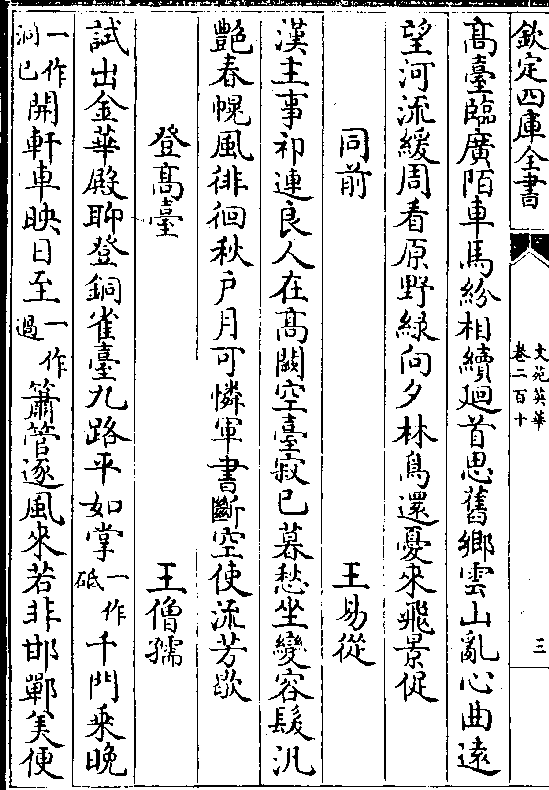 欽定四庫全書
文苑英華
卷二百十
三
髙臺臨廣陌車馬紛相續廻首思舊鄉雲山亂心曲遠
望河流緩周看原野緑向夕林鳥還憂來飛景促
同前 王易從
漢主事祁連良人在髙闕空臺寂已暮愁坐變容髮汎
艷春幌風徘徊秋户月可憐軍書斷空使流芳歇
登髙臺 王僧孺
試出金華殿聊登銅雀臺九路平如掌一作砥千門乗晚
一作洞已開軒車映日至一作過簫管逐風來若非邯鄲美便